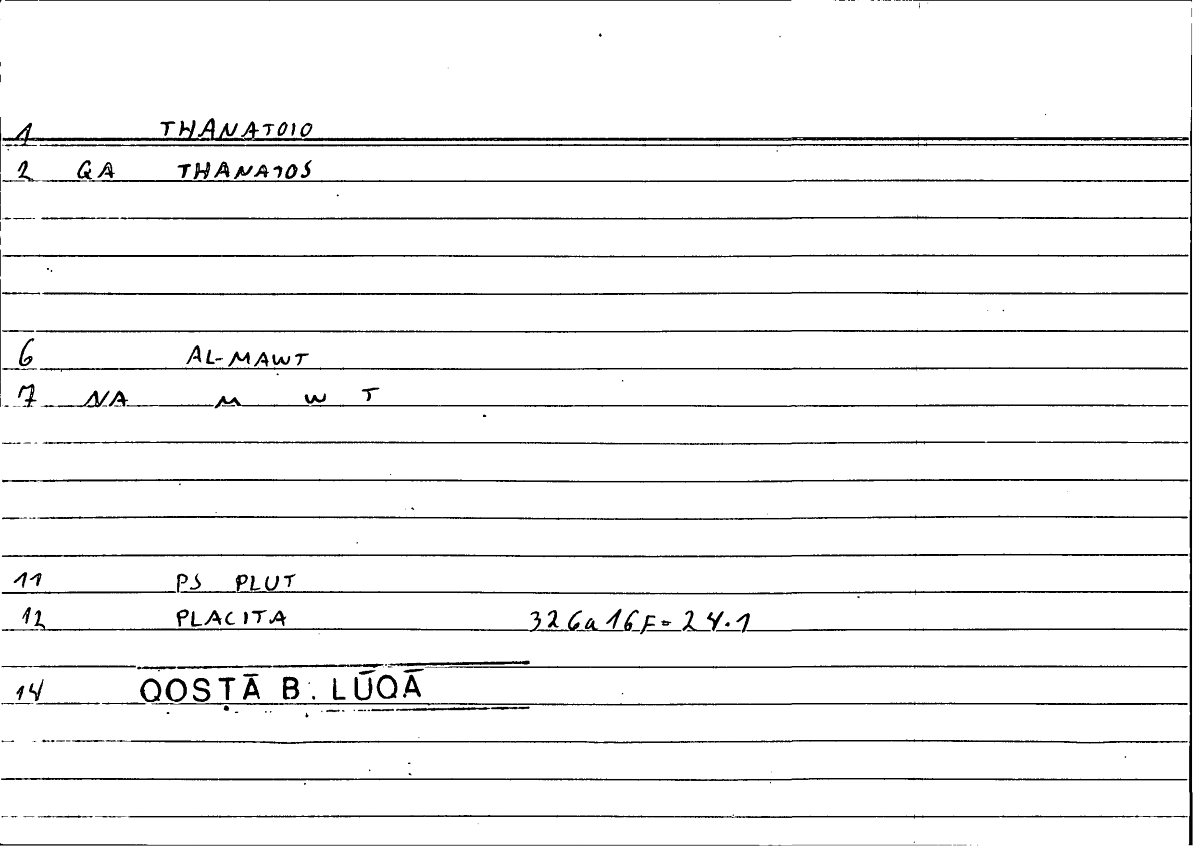 1 THANATOIO
2 GA THANATOS
6 AL-MAWT
7 NA M W T
11 PS PLUT
12 PLACITA 326a16F=24.1
14 QOSṬĀ B. LŪQĀ